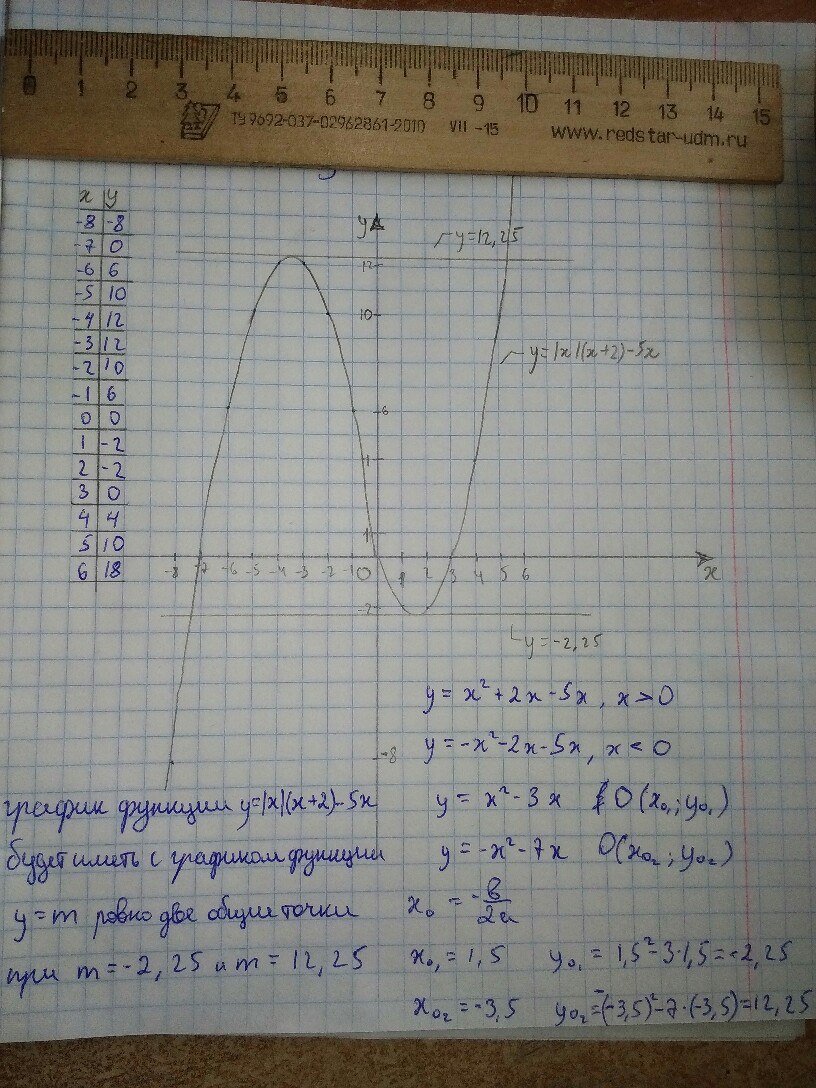 0 1 2 3 4 5 6 7 8 9 10 11 12 13 14 15
ТУ 9692-037-02962861-2010 VII -15 www.redstar-udm.ru
x y
-8 -8
-7 0
-6 6
-5 10
-4 12
-3 12
-2 10
-1 6
0 0
1 -2
2 -2
3 0
4 4
5 10
6 18
y
y=12,25
12
10
y=|x|(x+2)-5x
6
1
-8 -7 -6 -5 -4 -3 -2 -1 0 1 2 3 4 5 6 x
-2
y=-2,25
-8
y = x²+2x-5x, x>0
y = -x²-2x-5x, x<0
y = x²-3x O(x₀₁; y₀₁)
y = -x²-7x O(x₀₂; y₀₂)
x₀ = -в/2a
x₀₁ = 1,5 y₀₁ = 1,5²-3·1,5=-2,25
x₀₂ = -3,5 y₀₂=-(-3,5)²-7·(-3,5)=12,25
график функции y=|x|(x+2)-5x
будет иметь с графиком функции
y=m ровно две общие точки
при m=-2,25 и m=12,25